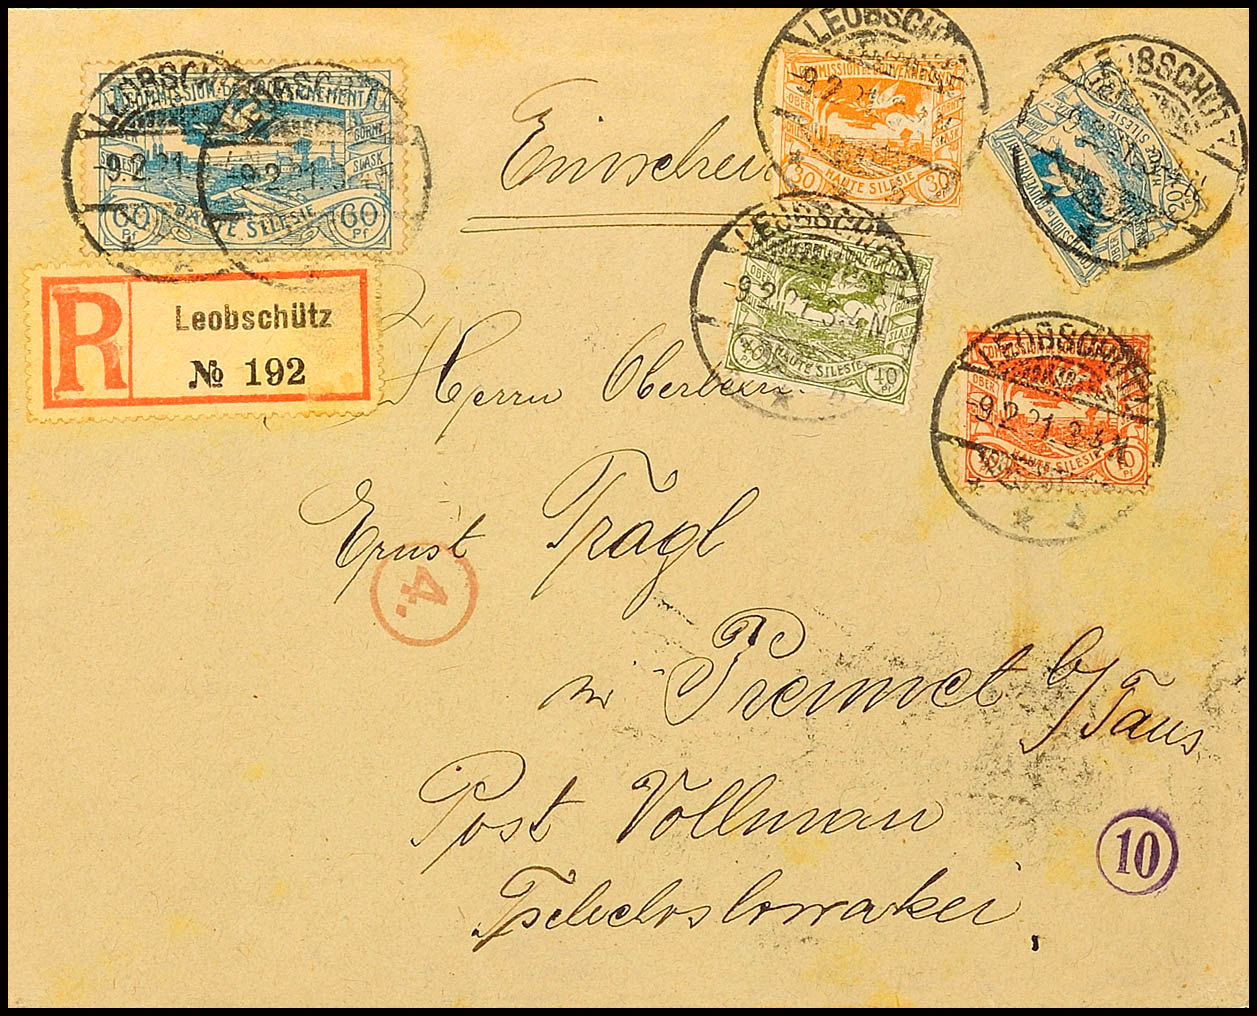 COMMISSION DE GOUVERNEMENT
OBER
SCHLESIEN
GÓRNY
ŚLĄSK
60 Pf
HAUTE SILESIE
60 Pf
LEOBSCHÜTZ
-9.2.21.
LEOBSCHÜTZ
-9.2.21.3-4N
R
Leobschütz
№ 192
COMMISSION DE GOUVERNEMENT
OBER
30
HAUTE SILESIE
30 Pf
LEOBSCHÜTZ
-9.2.21
20
HAUTE SILESIE
LEOBSCHÜTZ
OBER
40
HAUTE SILESIE
40 Pf
LEOBSCHÜTZ
-9.2.21.3-4N
OBER
10
HAUTE SILESIE
10 Pf
LEOBSCHÜTZ
-9.2.21.3-4N
* b
Einschrei
Herrn Oberlehrer
Ernst Tragl
4.
in b/Taus
Post Vollmau
Tschechoslowakei,
10